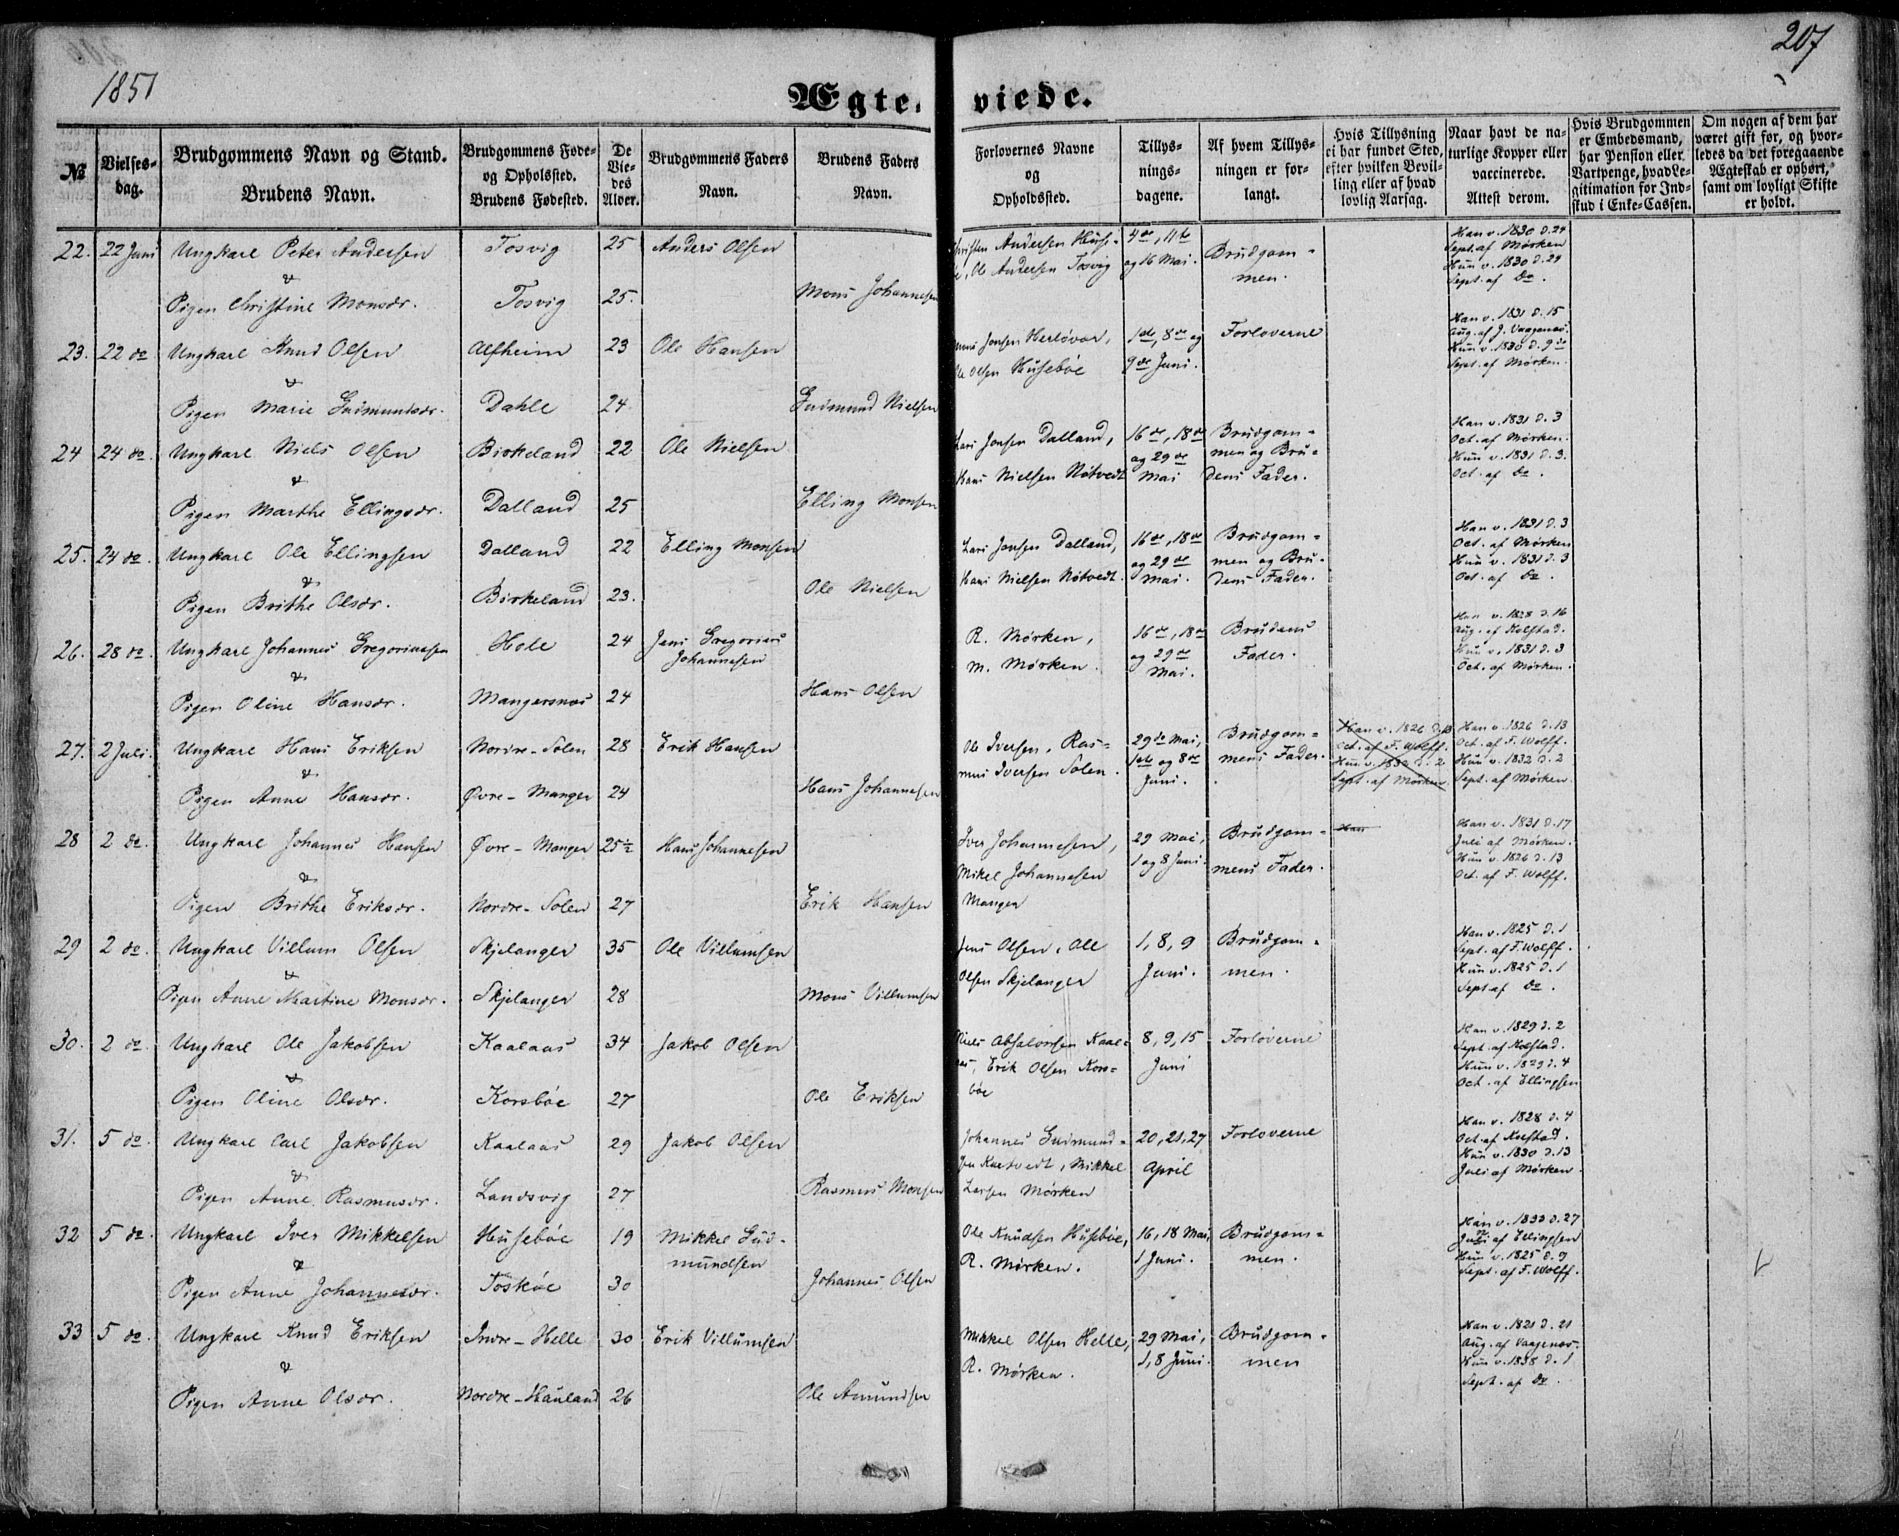 1851
207
Ægteviede.
№
Vielses-
dag.
Brudgommens Navn og Stand.
Brudens Navn.
Brudgommens Føde-
og Opholdssted.
Brudens Fødested.
De
Vie-
des
Alder.
Brudgommens Faders
Navn.
Brudens Faders
Navn.
Forlovernes Navne
og
Opholdssted.
Tillys-
nings-
dagene.
Af hvem Tillys-
ningen er for-
langt.
Hvis Tillysning
ei har fundet Sted,
efter hvilken Bevil-
ling eller af hvad
lovlig Aarsag.
Naar havt de na-
turlige Kopper eller
vaccinerede.
Attest derom.
Hvis Brudgommen
er Embedsmand,
har Pension eller
Vartpenge, hvad Le-
gitimation for Ind-
skud i Enke-Cassen.
Om nogen af dem har
været gift før, og hvor-
ledes da det foregaaende
Ægteskab er ophørt,
samt om lovligt Skifte
er holdt.
22. 22 Juni Ungkarl Peter Andersen Tosvig 25 Anders Olsen
&
Pigen Christine Monsdr. Tosvig 25. Mons Johannesen
Andersen Huse-
Ole Andersen Tosvig
4de, 11te
og 16 Mai.
Brudgom-
men.
Han v. 1830 d. 24
Sept. af Mørken
Hun v. 1830 d. 24
Sept. af do.
23. 22 do Ungkarl Knud Olsen Alfheim 23 Ole Hansen
&
Pigen Marie Gudmundsdr. Dahle 24. Gudmund Nielsen
Jensen Herløvær,
Ole Olsen Husebøe
1ste, 8de og
9de Juni.
Forloverne
Han v. 1831 d. 15
Aug. af J. Vaagenæs.
Hun v. 1830 d. 9de
Sept. af Mørken.
24 24 do. Ungkarl Niels Olsen Birkeland 22 Ole Nielsen
&
Pigen Marthe Ellingsdr. Dalland 25 Elling Monsen
Lars Jensen Dalland,
Hans Nielsen Nøtvedt
16de, 18de
og 29de
Mai
Brudgom-
men og Bru-
dens Fader.
Han v. 1831 d. 3
Oct. af Mørken.
Hun v. 1831 d. 3.
Oct. af do.
25. 24 do. Ungkarl Ole Ellingsen Dalland 22 Elling Monsen
&
Pigen Brithe Olsdr. Birkeland 23. Ole Nielsen
Lars Jensen Dalland,
Hans Nielsen Nøtvedt.
16de, 18de
og 29de
Mai.
Brudgom-
men og Bru-
dens Fader.
Han v. 1831 d. 3
Oct. af Mørken
Hun v. 1831 d. 3
Oct. af do.
26. 28 do. Ungkarl Johannes Gregoriussen Hole 24 Jens Gregorius
Johannesen
&
Pigen Oline Hansdr. Mangersnæs 24 Hans Olsen
R. Mørken,
M. Mørken.
16de, 18de
og 29de
Mai.
Brudens
Fader.
Han v. 1828 d. 16
Aug. af Kolstad.
Hun v. 1831 d. 3
Oct. af Mørken.
27. 2 Juli. Ungkarl Hans Eriksen Nordre-Solen 28 Erik Hansen
&
Pigen Anne Hansdr. Øvre-Manger 24 Hans Johannesen
Ole Iversen, Ras-
mus Iversen Solen.
29de Mai,
1ste og 8de
Juni.
Brudgom-
mens Fader.
Han v. 1826 d. 13
Oct. af F. Wolff.
Hun v. 1832 d. 2
Sept. af Mørken
Han v. 1826 d. 13
Oct. af F. Wolff.
Hun v. 1832 d. 2
Sept. af Mørken.
28 2 do. Ungkarl Johannes Hansen Øvre-Manger 25½ Hans Johannesen
&
Pigen Brithe Eriksdr. Nordre-Solen 27 Erik Hansen
Iver Johannesen,
Mikel Johannesen
Manger
29 Mai,
1 og 8 Juni.
Brudgom-
mens Fader.
Han
Han v. 1831 d. 17
Juli af Mørken.
Hun v. 1826 d. 13
Oct. af F. Wolff.
29 2 do. Ungkarl Villum Olsen Skjelanger 35 Ole Villumsen
&
Pigen Anne Martine Monsdr. Skjelanger 28 Mons Villumsen
Jens Olsen, Ole
Olsen Skjelanger
1, 8, 9
Juni.
Brudgom-
men.
Han v. 1825 d. 1
Sept. af F. Wolff.
Hun v. 1825 d. 1
Sept. af do.
30. 2 do. Ungkarl Ole Jakobsen Kaalaas 34 Jakob Olsen
&
Pigen Oline Olsdr. Korsbøe 27 Ole Eriksen
Niels Absalonsen Kaal-
Erik Olsen Kors-
bøe
8, 9, 15
Juni
Forloverne
Han v. 1829 d. 2
Sept. af Kolstad.
Hun v. 1829 d. 4
Oct. af Ellingsen
31. 5 do. Ungkarl Carl Jakobsen Kaalaas 29 Jakob Olsen
&
Pigen Anne Rasmusdr. Landsvig 27 Rasmus Monsen
Johannes Gudmund-
Mikkel
Larsen Mørken
20, 21, 27
April
Forloverne
Han v. 1828 d. 4
Oct. af Kolstad.
Hun v. 1830 d. 13
Juli af Mørken.
32 5 do. Ungkarl Iver Mikkelsen Husebøe 19 Mikkel Gud-
mundsen
&
Pigen Anne Johannesdr. Toskøe 30 Johannes Olsen
Ole Knudsen Husebøe,
R. Mørken.
16, 18 Mai,
1 Juni.
Brudgom-
men.
Han v. 1833 d. 27
Juli af Ellingsen
Hun v. 1825 d. 9
Sept. af F. Wolff.
33 5 do. Ungkarl Knud Eriksen Indre-Helle 30 Erik Villumsen
&
Pigen Anne Olsdr. Nordre-Hauland 26 Ole Amundsen
Mikkel Olsen Helle,
R. Mørken.
29 Mai,
1, 8 Juni.
Brudgom-
men
Han v. 1821 d. 21
Aug. af Vaagenæs.
Hun v. 1838 d. 1
Sept. af do.